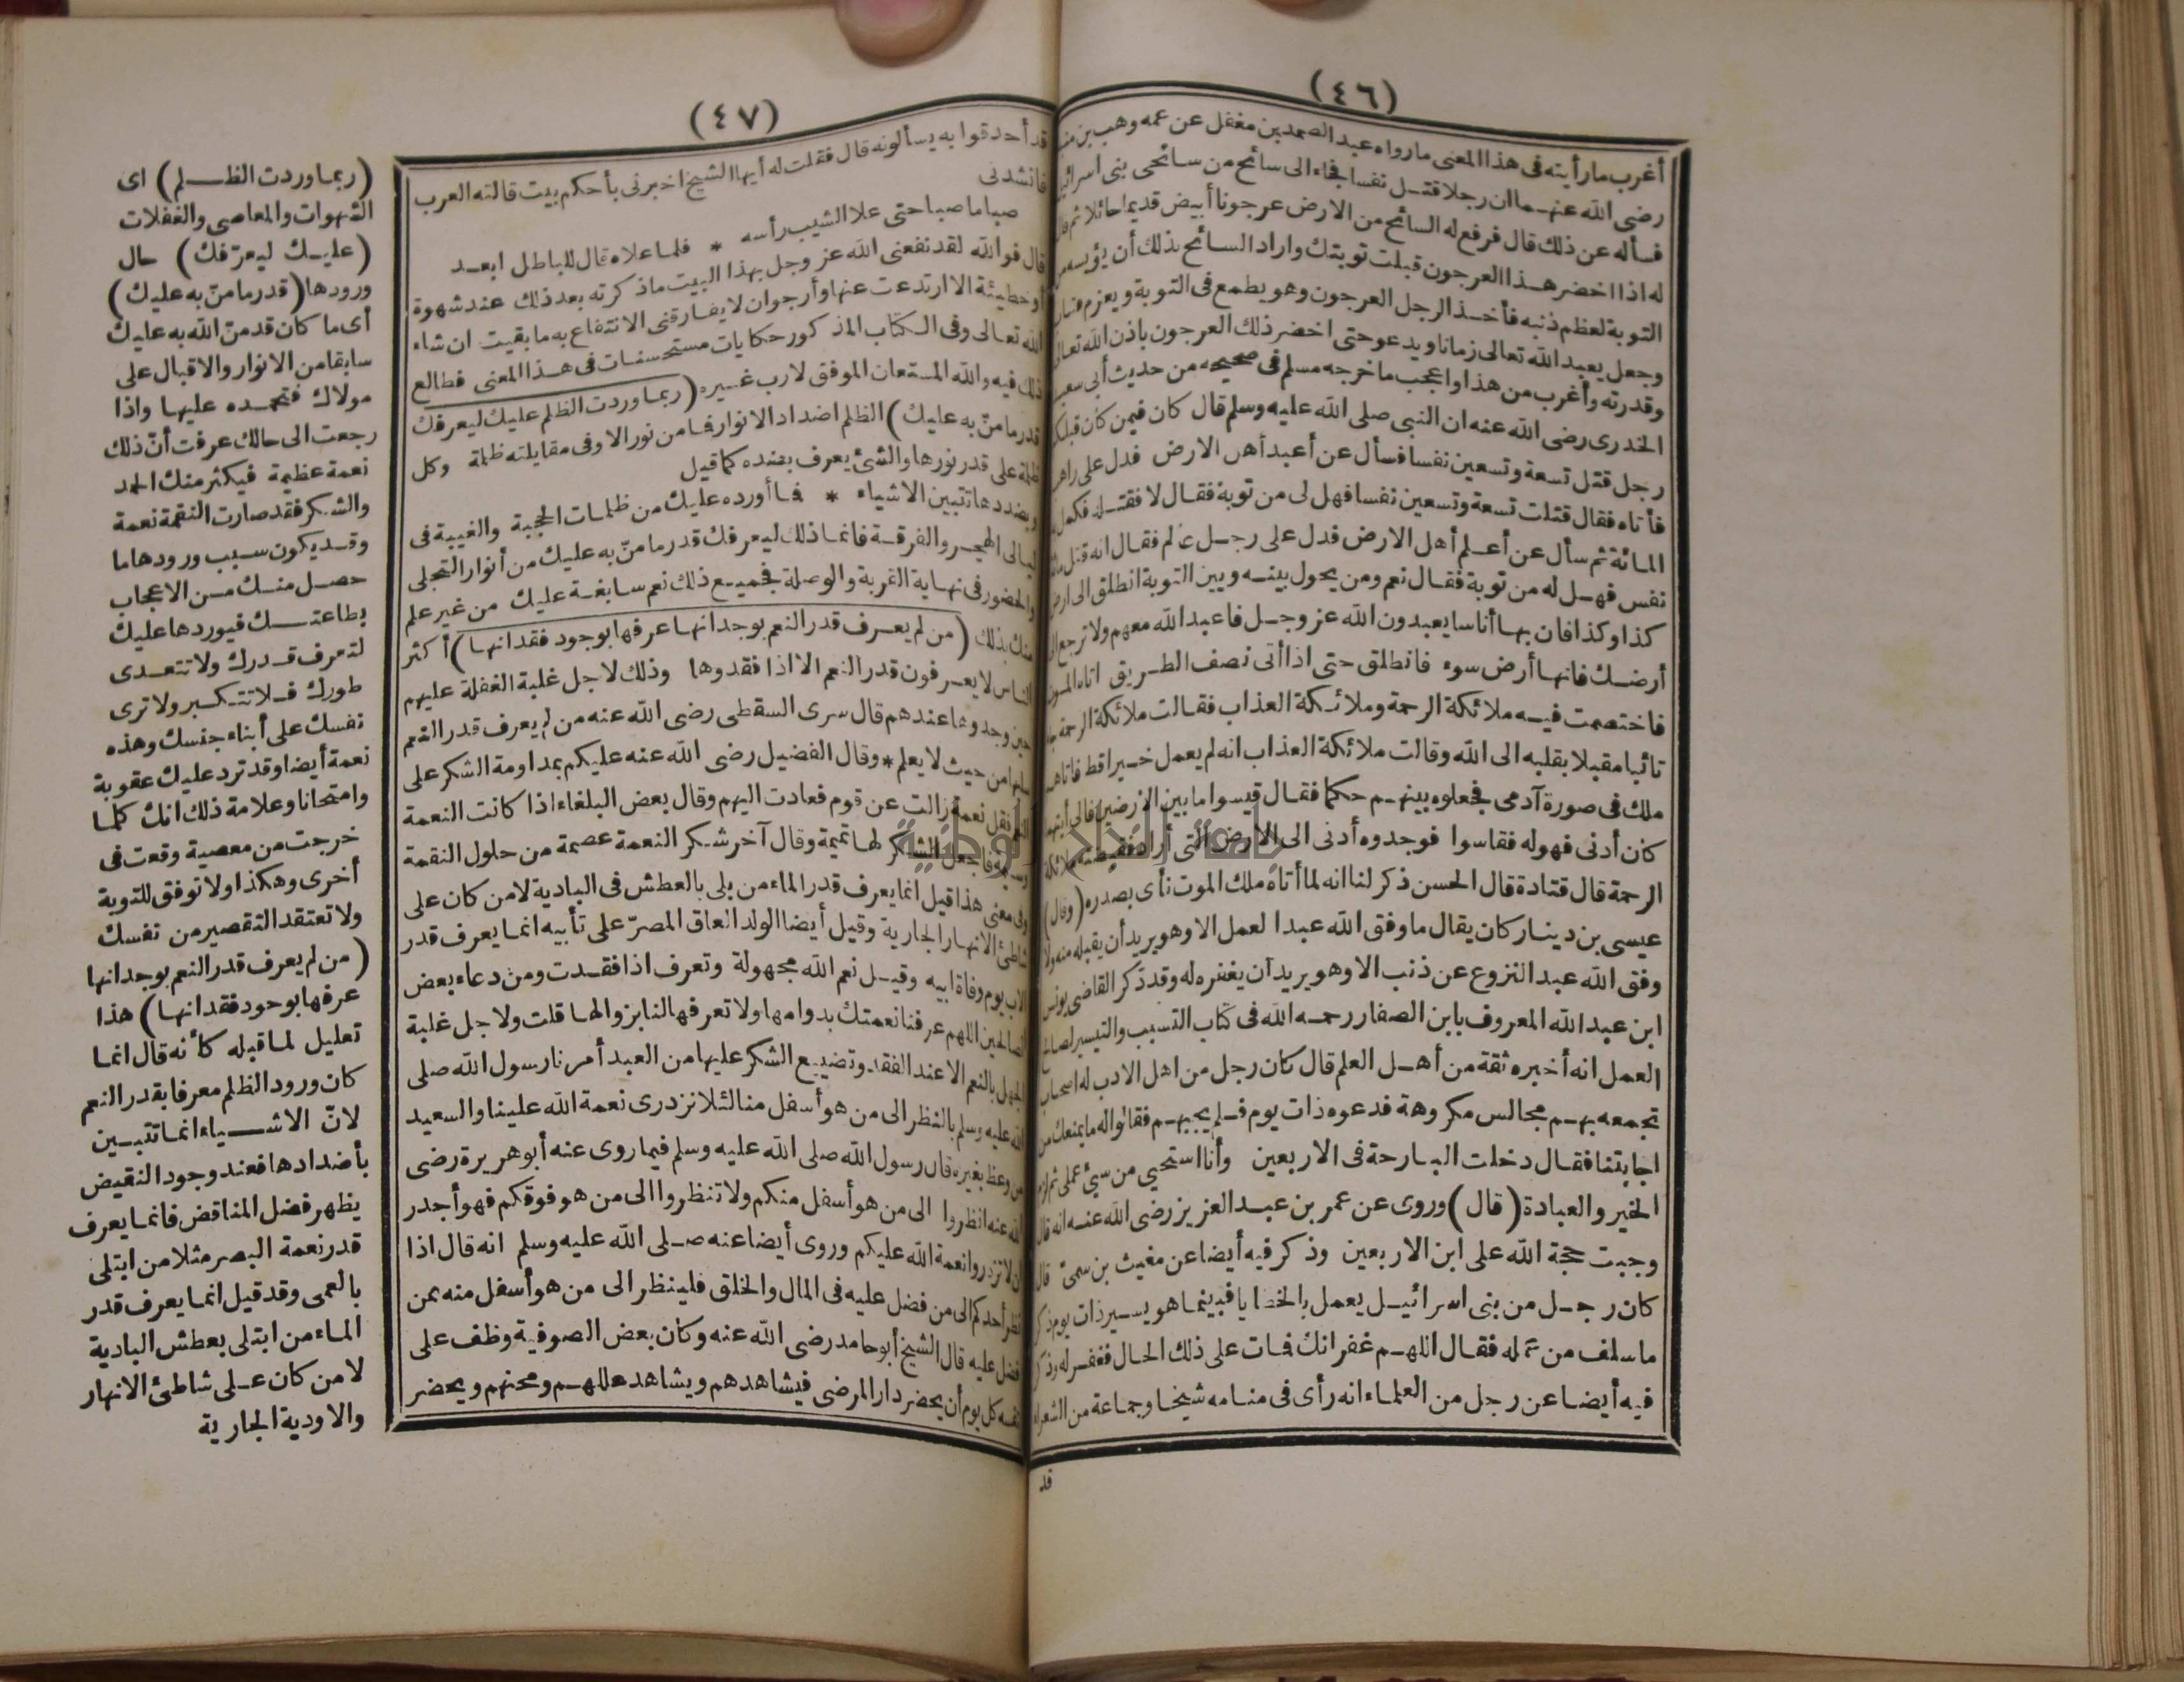 (٤٦)
أغرب ما رأيته فى هذا المعنى ما رواه عبد الصمد بن مغفل عن عمه وهب بن
رضى الله عنهما ان رجلا قتل نفسا فجاء الى سائح من سائحى بنى اسرائيل
فسأله عن ذلك قال فرفع له السائح من الارض عرجونا أبيض قديما حائلا ثم قال
له اذا اخضر هذا العرجون قبلت توبتك واراد السائح بذلك أن يؤيسه من
التوبة لعظم ذنبه فأخذ الرجل العرجون وهو يطمع فى التوبة ويعزم
وجعل يعبد الله تعالى زمانا ويدعو حتى اخضر ذلك العرجون باذن الله تعالى
وقدرته وأغرب من هذا واعجب ما خرجه مسلم فى صحيحه من حديث أبى سعيد
الخدرى رضى الله عنه ان النبى صلى الله عليه وسلم قال كان فيمن كان قبلكم
رجل قتل تسعة وتسعين نفسا فسأل عن أعبد أهل الارض فدل على راهب
فأتاه فقال قتلت تسعة وتسعين نفسا فهل لى من توبة فقال لا فقتله فكمل
المائة ثم سأل عن أعلم أهل الارض فدل على رجل عالم فقال انه قتل مائة
نفس فهل له من توبة فقال نعم ومن يحول بينه وبين التوبة انطلق الى ارض
كذا وكذا فان بها أناسا يعبدون الله عز وجل فاعبد الله معهم ولا ترجع الى
أرضك فانها أرض سوء فانطلق حتى اذا أتى نصف الطريق اتاه الموت
فاختصمت فيه ملائكة الرحمة وملائكة العذاب فقالت ملائكة الرحمة جاء
تائبا مقبلا بقلبه الى الله وقالت ملائكة العذاب انه لم يعمل خيرا قط فاتاهم
ملك فى صورة آدمى فجعلوه بينهم حكما فقال قيسوا ما بين الارضين فالى أيتهما
كان أدنى فهو له فقاسوا فوجدوه أدنى الى الارض التى أراد فقبضته ملائكة
الرحمة قال قتادة قال الحسن ذكر لنا انه لما أتاه ملك الموت نأى بصدره (وقال)
عيسى بن دينار كان يقال ما وفق الله عبدا لعمل الا وهو يريد أن يقبله منه ولا
وفق الله عبد النزوع عن ذنب الا وهو يريد أن يغفره له وقد ذكر القاضى يونس
ابن عبد الله المعروف بابن الصفار رحمه الله فى كتاب التسبيب والتيسير لصالح
العمل انه أخبره ثقة من أهل العلم قال كان رجل من اهل الادب له اصحاب
تجمعه بهم مجالس مكروهة فدعوه ذات يوم فلم يجبهم فقالوا له ما يمنعك من
اجابتنا فقال دخلت البارحة فى الاربعين وأنا استحيى من سئ عملى ثم لزم
الخير والعبادة (قال) وروى عن عمر بن عبد العزيز رضى الله عنه انه قال
وجبت حجة الله على ابن الاربعين وذكر فيه أيضا عن مغيث بن سمىّ قال
كان رجل من بنى اسرائيل يعمل بالخطايا فبينما هو يسير ذات يوم ذكر
ما سلف من عمله فقال اللهم غفرانك فمات على ذلك الحال فغفر له وذكر
فيه أيضا عن رجل من العلماء انه رأى فى منامه شيخا وجماعة من الشعراء
قد
(٤٧)
قد أحدقوا به يسألونه قال فقلت له أيها الشيخ اخبرنى بأحكم بيت قالته العرب
فانشدنى
صبا ما صبا حتى علا الشيب رأسه * فلما علاه قال للباطل ابعد
قال فوالله لقد نفعنى الله عز وجل بهذا البيت ما ذكرته بعد ذلك عند شهوة
أو خطيئة الا ارتدعت عنها وأرجو ان لا يفارقنى الانتفاع به ما بقيت ان شاء
الله تعالى وفى الكتاب المذكور حكايات مستحسنات فى هذا المعنى فطالع
ذلك فيه والله المستعان الموفق لا رب غيره (ربما وردت الظلم عليك ليعرفك
قدر ما منّ به عليك) الظلم اضداد الانوار فما من نور الا وفى مقابلته ظلمة وكل
ظلمة على قدر نورها والشئ يعرف بضده كما قيل
وبضدها تتبين الاشياء * فما أورده عليك من ظلمات الحجبة والغيبة فى
ليالى الهجر والفرقة فانما ذلك ليعرفك قدر ما منّ به عليك من أنوار التجلى
والحضور فى نهاية القربة والوصلة فجميع ذلك نعم سابغة عليك من غير علم
منك بذلك (من لم يعرف قدر النعم بوجدانها عرفها بوجود فقدانها) أكثر
الناس لا يعرفون قدر النعم الا اذا فقدوها وذلك لاجل غلبة الغفلة عليهم
حين وجدوها عندهم قال سرى السقطى رضى الله عنه من لم يعرف قدر النعم
سلبها من حيث لا يعلم * وقال الفضيل رضى الله عنه عليكم بمداومة الشكر على
النعم فقل نعمة زالت عن قوم فعادت اليهم وقال بعض البلغاء اذا كانت النعمة
وسيمة فاجعل الشكر لها تميمة وقال آخر شكر النعمة عصمة من حلول النقمة
وفى معنى هذا قيل انما يعرف قدر الماء من بلى بالعطش فى البادية لا من كان على
شاطئ الانهار الجارية وقيل أيضا الولد العاق المصرّ على تأبيه انما يعرف قدر
الاب يوم وفاة ابيه وقيل نعم الله مجهولة وتعرف اذا فقدت ومن دعاء بعض
الصالحين اللهم عرفنا نعمتك بدوامها ولا تعرفها لنا بزوالها قلت ولاجل غلبة
الجهل بالنعم الا عند الفقد وتضييع الشكر عليها من العبد أمرنا رسول الله صلى
الله عليه وسلم بالنظر الى من هو أسفل منا لئلا نزدرى نعمة الله علينا والسعيد
من وعظ بغيره قال رسول الله صلى الله عليه وسلم فيما روى عنه أبو هريرة رضى
الله عنه انظروا الى من هو أسفل منكم ولا تنظروا الى من هو فوقكم فهو أجدر
ان لا تزدروا نعمة الله عليكم وروى أيضا عنه صلى الله عليه وسلم انه قال اذا
نظر أحدكم الى من فضل عليه فى المال والخلق فلينظر الى من هو أسفل منه ممن
فضل عليه قال الشيخ أبو حامد رضى الله عنه وكان بعض الصوفية وظف على
نفسه كل يوم أن يحضر دار المرضى فيشاهدهم ويشاهد عللهم ومحنهم ويحضر
(ربما وردت الظلم) اى
الشهوات والمعاصى والغفلات
(عليك ليعرّفك) حال
ورودها (قدر ما منّ به عليك)
أى ما كان قد منّ الله به عليك
سابقا من الانوار والاقبال على
مولاك فتحمده عليها واذا
رجعت الى حالك عرفت أنّ ذلك
نعمة عظيمة فيكثر منك الحمد
والشكر فقد صارت النقمة نعمة
وقد يكون سبب ورودها ما
حصل منك من الاعجاب
بطاعتك فيوردها عليك
لتعرف قدرك ولا تتعدى
طورك فلا تتكبر ولا ترى
نفسك على أبناء جنسك وهذه
نعمة أيضا وقد ترد عليك عقوبة
وامتحانا وعلامة ذلك انك كلما
خرجت من معصية وقعت فى
أخرى وهكذا ولا توفق للتوبة
ولا تعتقد التقصير من نفسك
(من لم يعرف قدر النعم بوجدانها
عرفها بوجود فقدانها) هذا
تعليل لما قبله كأنه قال انما
كان ورود الظلم معرفا بقدر النعم
لانّ الاشياء انما تتبين
بأضدادها فعند وجود النقيض
يظهر فضل المناقض فانما يعرف
قدر نعمة البصر مثلا من ابتلى
بالعمى وقد قيل انما يعرف قدر
الماء من ابتلى بعطش البادية
لا من كان على شاطئ الانهار
والاودية الجارية